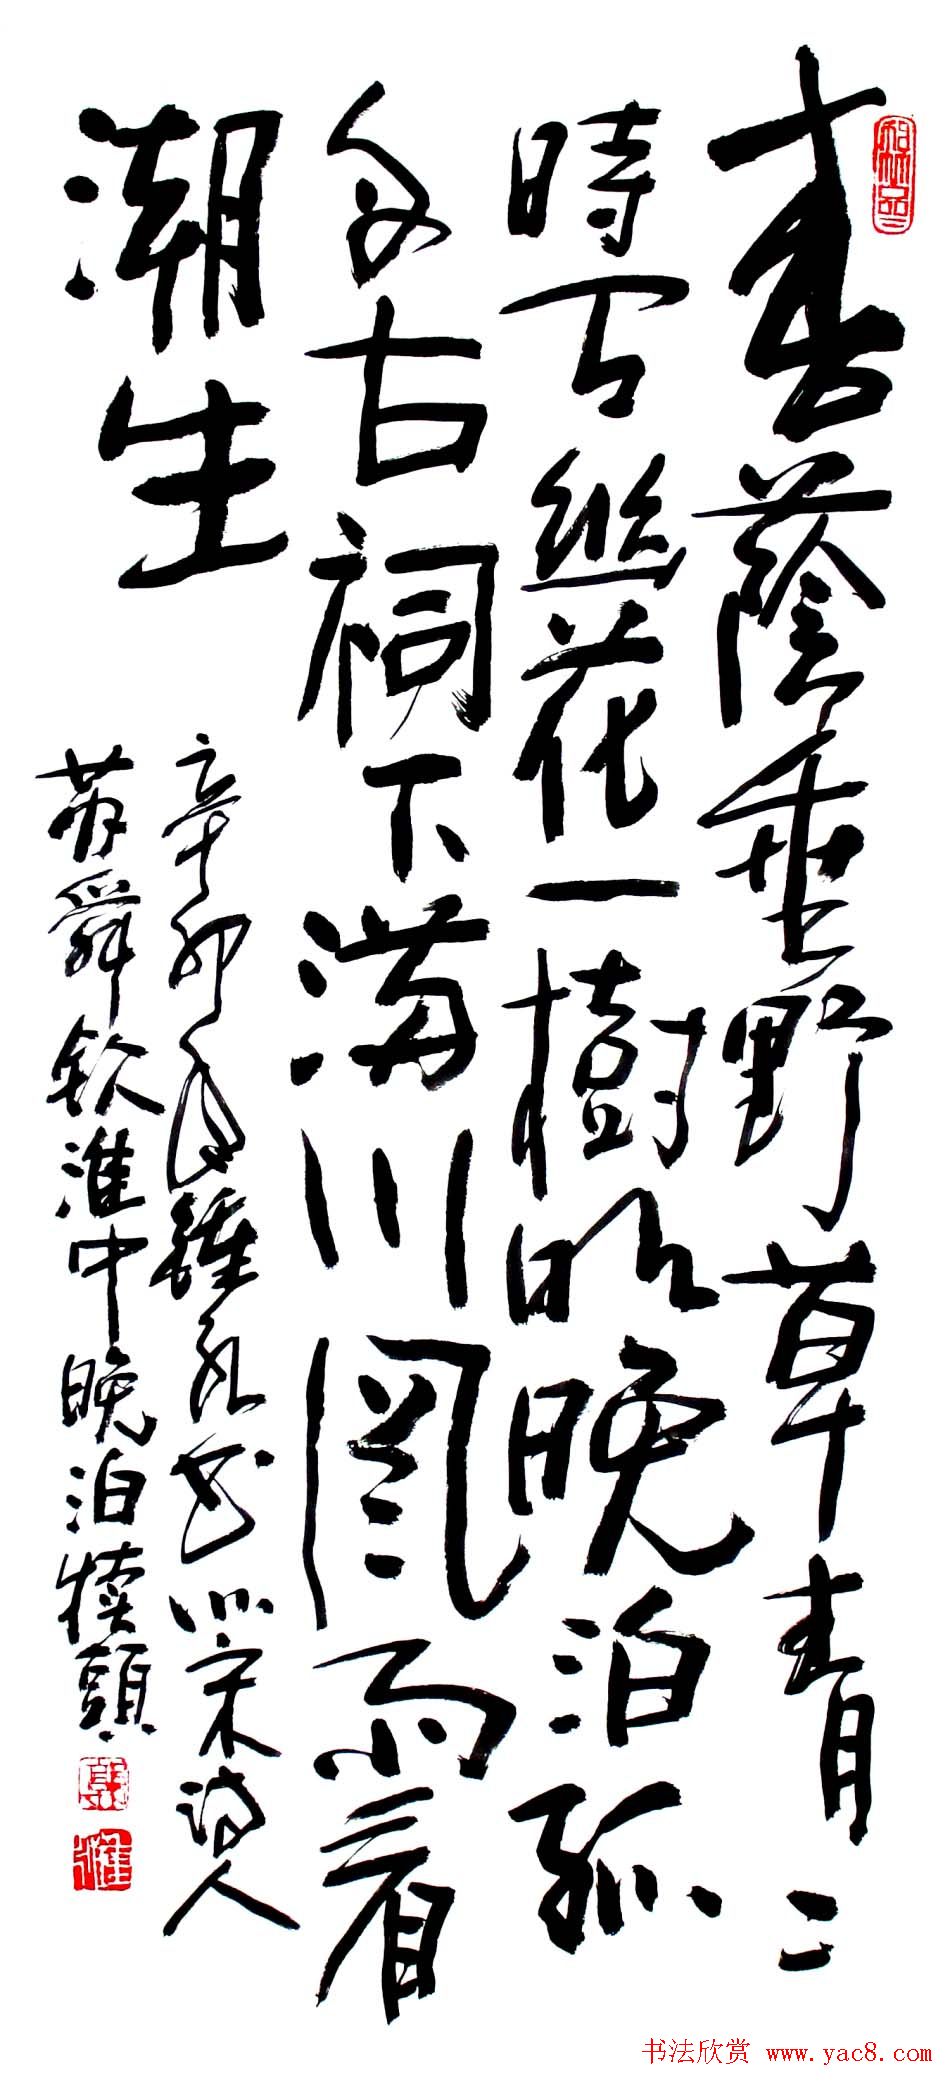 春蔭垂野草青〻
時有幽花一樹明晚泊孤
舟古祠下滿川風雨看
潮生
辛卯年書北宋詩人
蘇舜欽淮中晚泊犢頭
书法欣赏 www.yac8.com